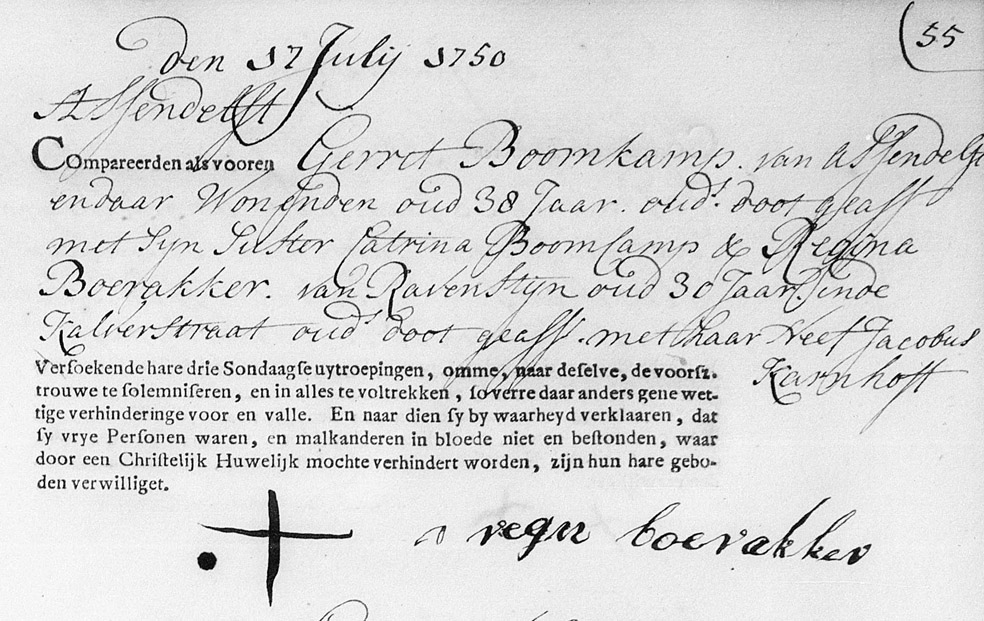 55
den 17 Julij 1750
Assendelft
COmpareerden als vooren Gerret Boomkamp. van Assendelft
endaar Wonenden oud 38 Jaar. ouds. doot geass
met syn suster Catrina Boomcamp & Regina
Boerakker. van RavenStyn oud 30 Jaar inde
Kalverstraat ouds doot geass. met haar Neef Jacobus
Karnhoff
Versoekende hare drie Sondaagse uytroepingen, omme, naar deselve, de voorsz.
trouwe te solemniseren, en in alles te voltrekken, so verre daar anders gene wet-
tige verhinderinge voor en valle. En naar dien sy by waarheyd verklaaren, dat
sy vrye Personen waren, en malkanderen in bloede niet en bestonden, waar
door een Christelijk Huwelijk mochte verhindert worden, zijn hun hare gebo-
den verwilliget.
regu boerakker